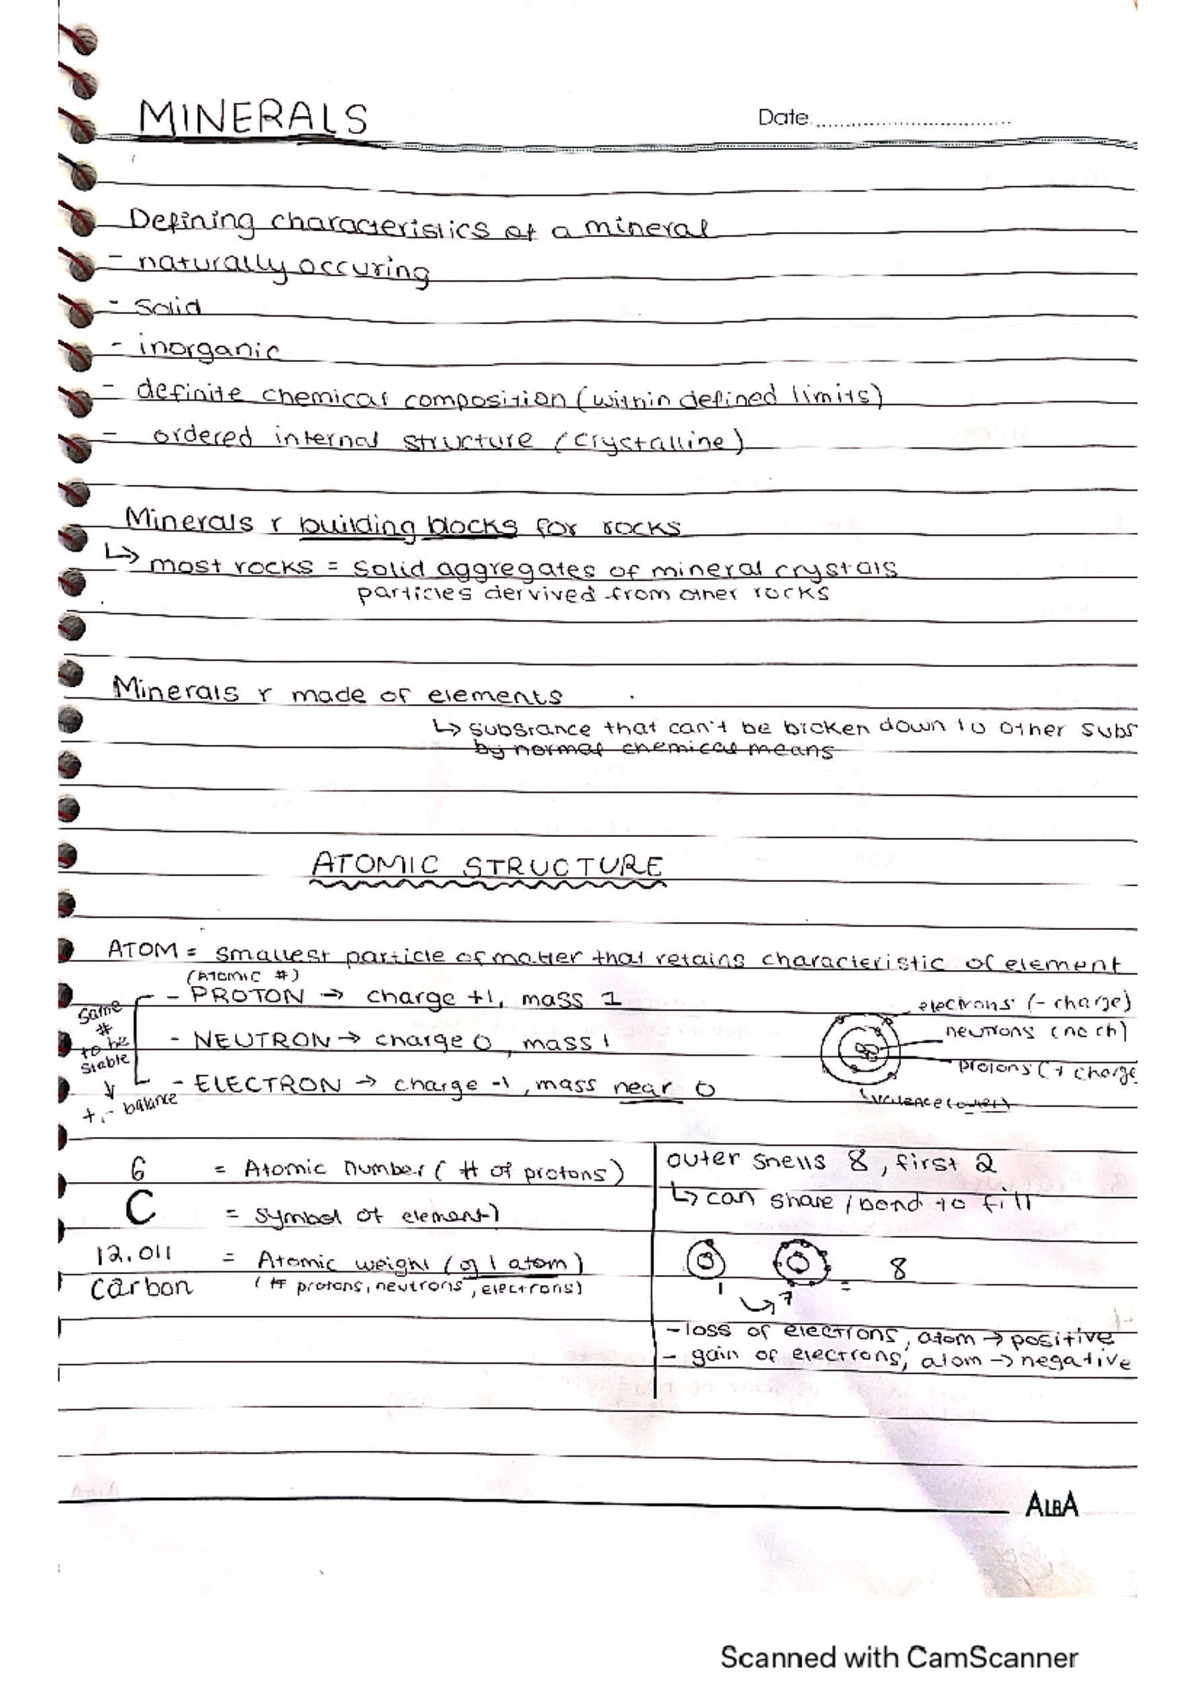 MINERALS
Date
Defining characteristics of a mineral
- naturally occuring
- solid
- inorganic
- definite chemical composition (within defined limits)
- ordered internal structure (crystalline)
Minerals r building blocks for rocks
↳ most rocks = solid aggregates of mineral crystals
particles dervived from other rocks
Minerals r made of elements
↳ substance that can't be broken down to other subs
by normal chemical means
ATOMIC STRUCTURE
ATOM = smallest particle of matter that retains characteristic of element
(ATOMIC #)
- PROTON → charge +1, mass 1
- NEUTRON → charge 0, mass 1
- ELECTRON → charge -1, mass near 0
same
#
to be
stable
↓
+,- balance
electrons (- charge)
neutrons (no ch)
protons (+ charge
valence (outer)
6 = Atomic number (# of protons)
C = symbol of element)
12.011 = Atomic weight (of 1 atom)
carbon (# protons, neutrons, electrons)
outer shells 8, first 2
↳ can share / bond to fill
= 8
1 7
- loss of electrons, atom → positive
- gain of electrons, atom → negative
ALBA
Scanned with CamScanner